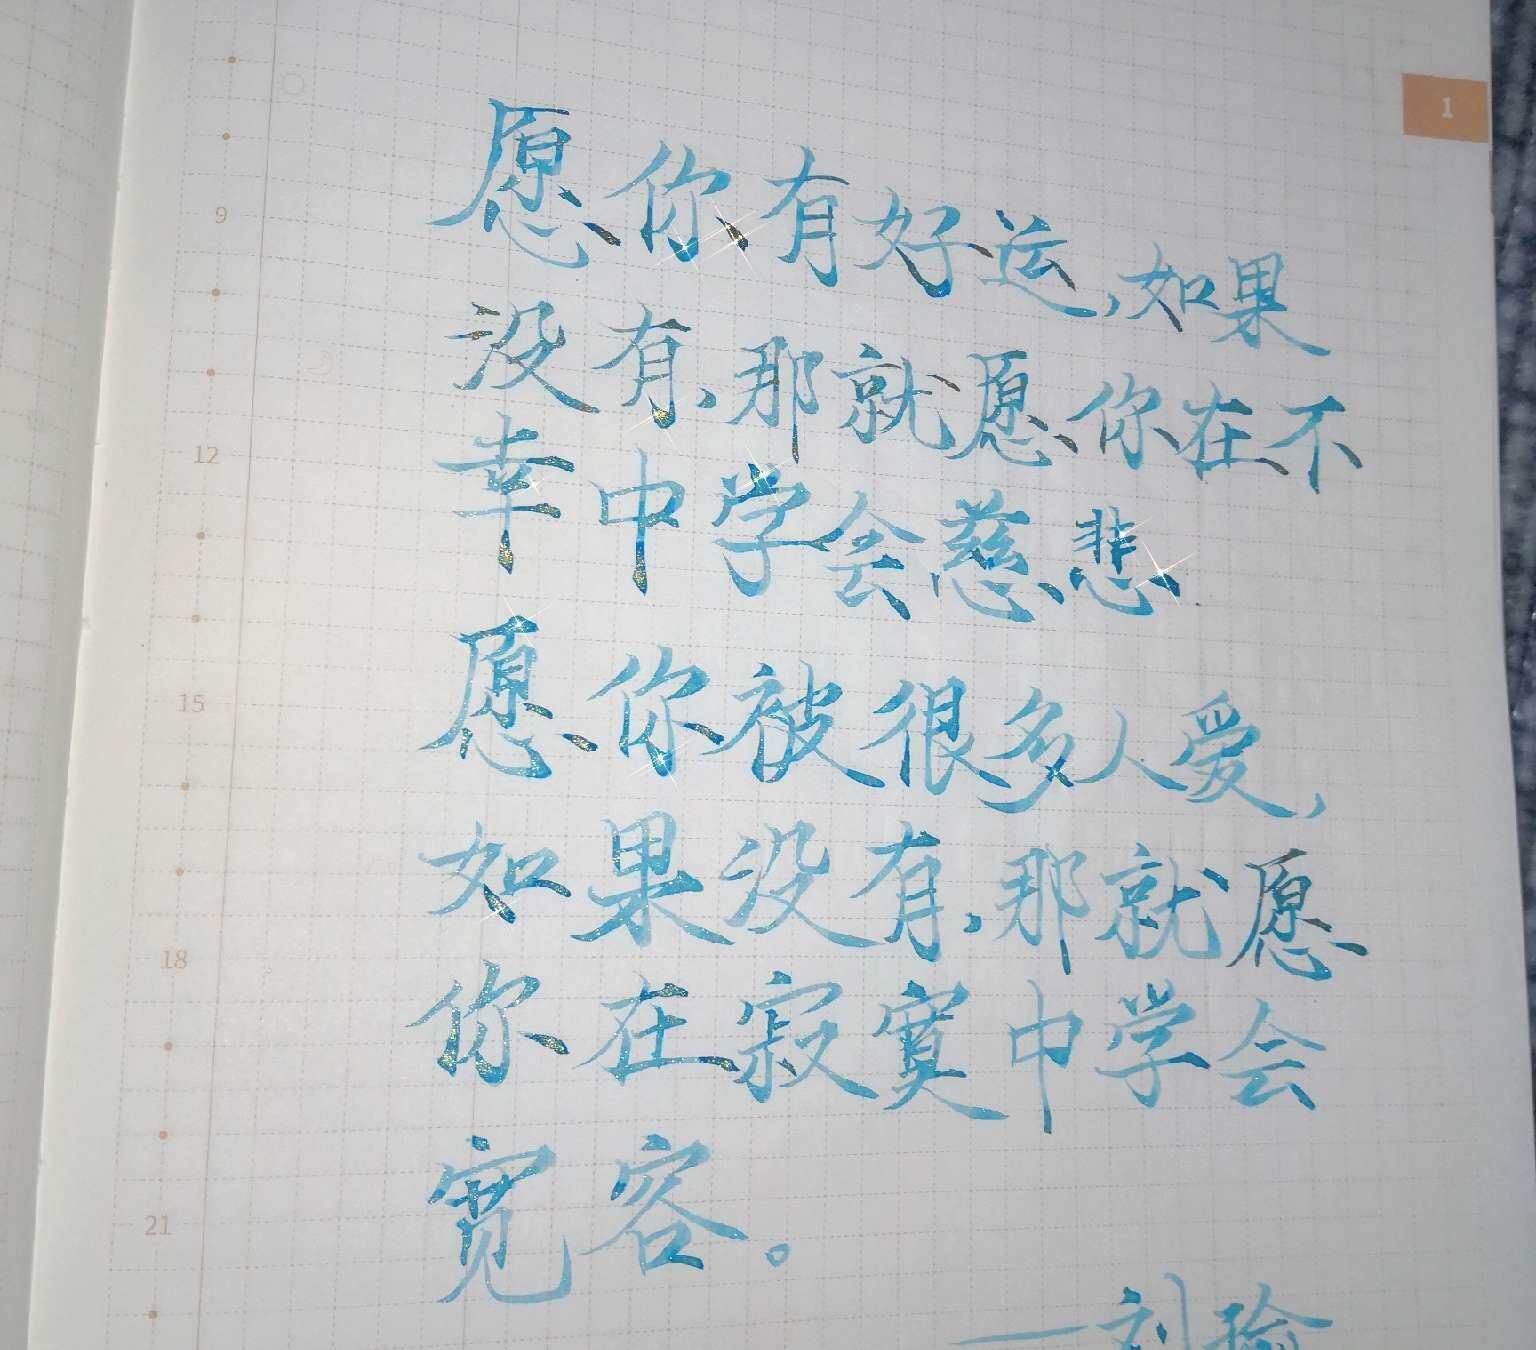 1
愿你有好运,如果
9
没有,那就愿你在不
12
幸中学会慈悲
愿你被很多人爱,
15
如果没有,那就愿
18
你在寂寞中学会
宽容。
21
——刘瑜